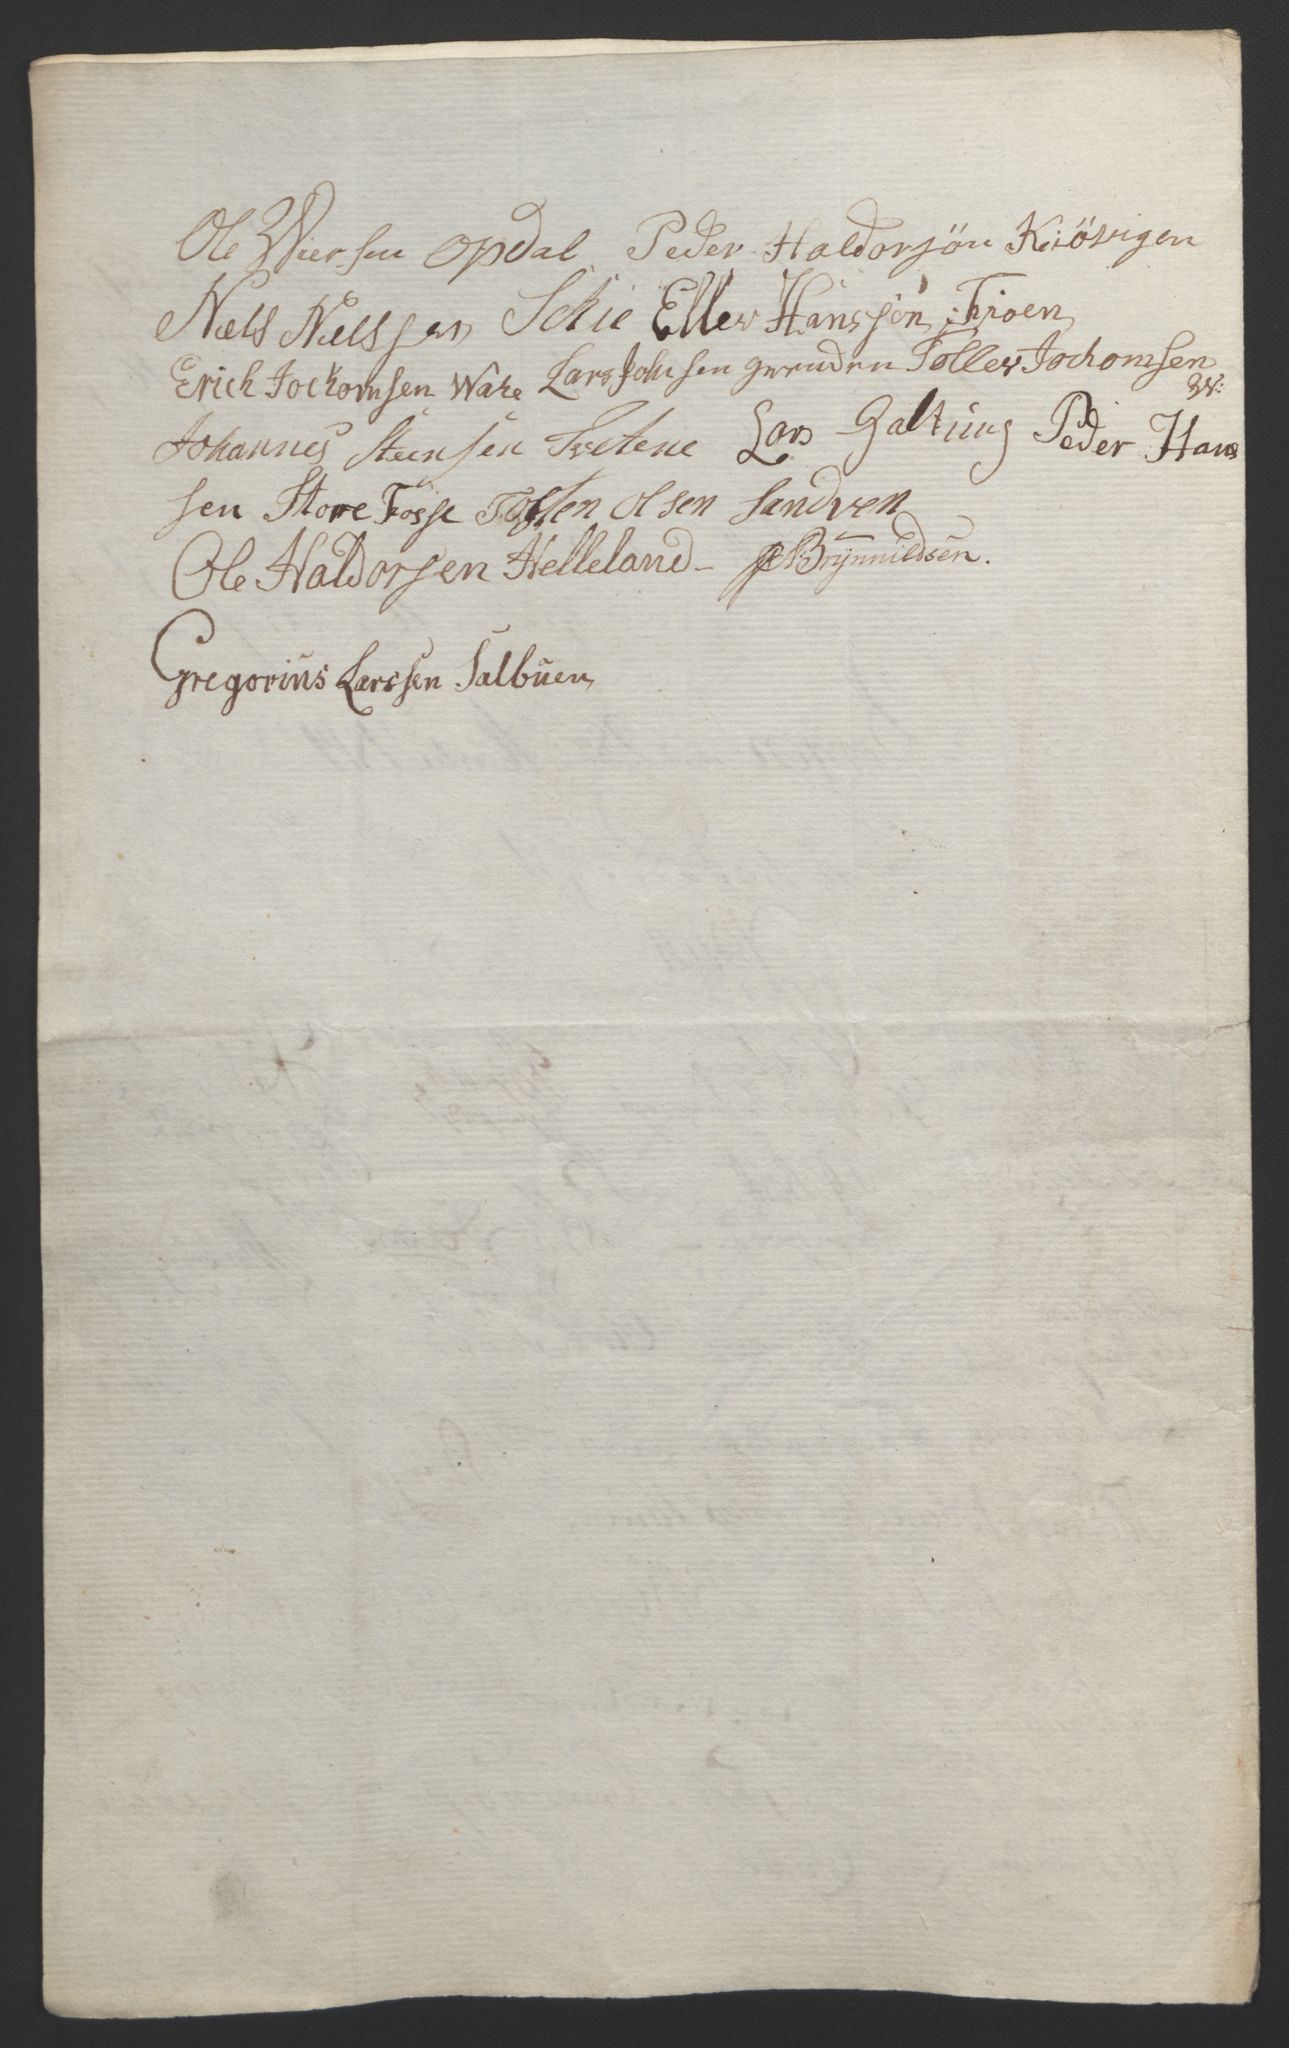 Ole Wiersen Opdal Peder Haldorsön Kiösvigen
Nels Nelssen Schie Eller Hanssön Troen
Erich Jochomsen Wahe Lars Johnsen Tollev Jochomsen
W:
Johannes Steensen Tvetene Lars Galtüng Peder Han
sen Store Fosse Tosten Olsen Sandven
Ole Haldorsen Helleland - Brÿnnildsen.
Gregoriüs Larssen Salbüen